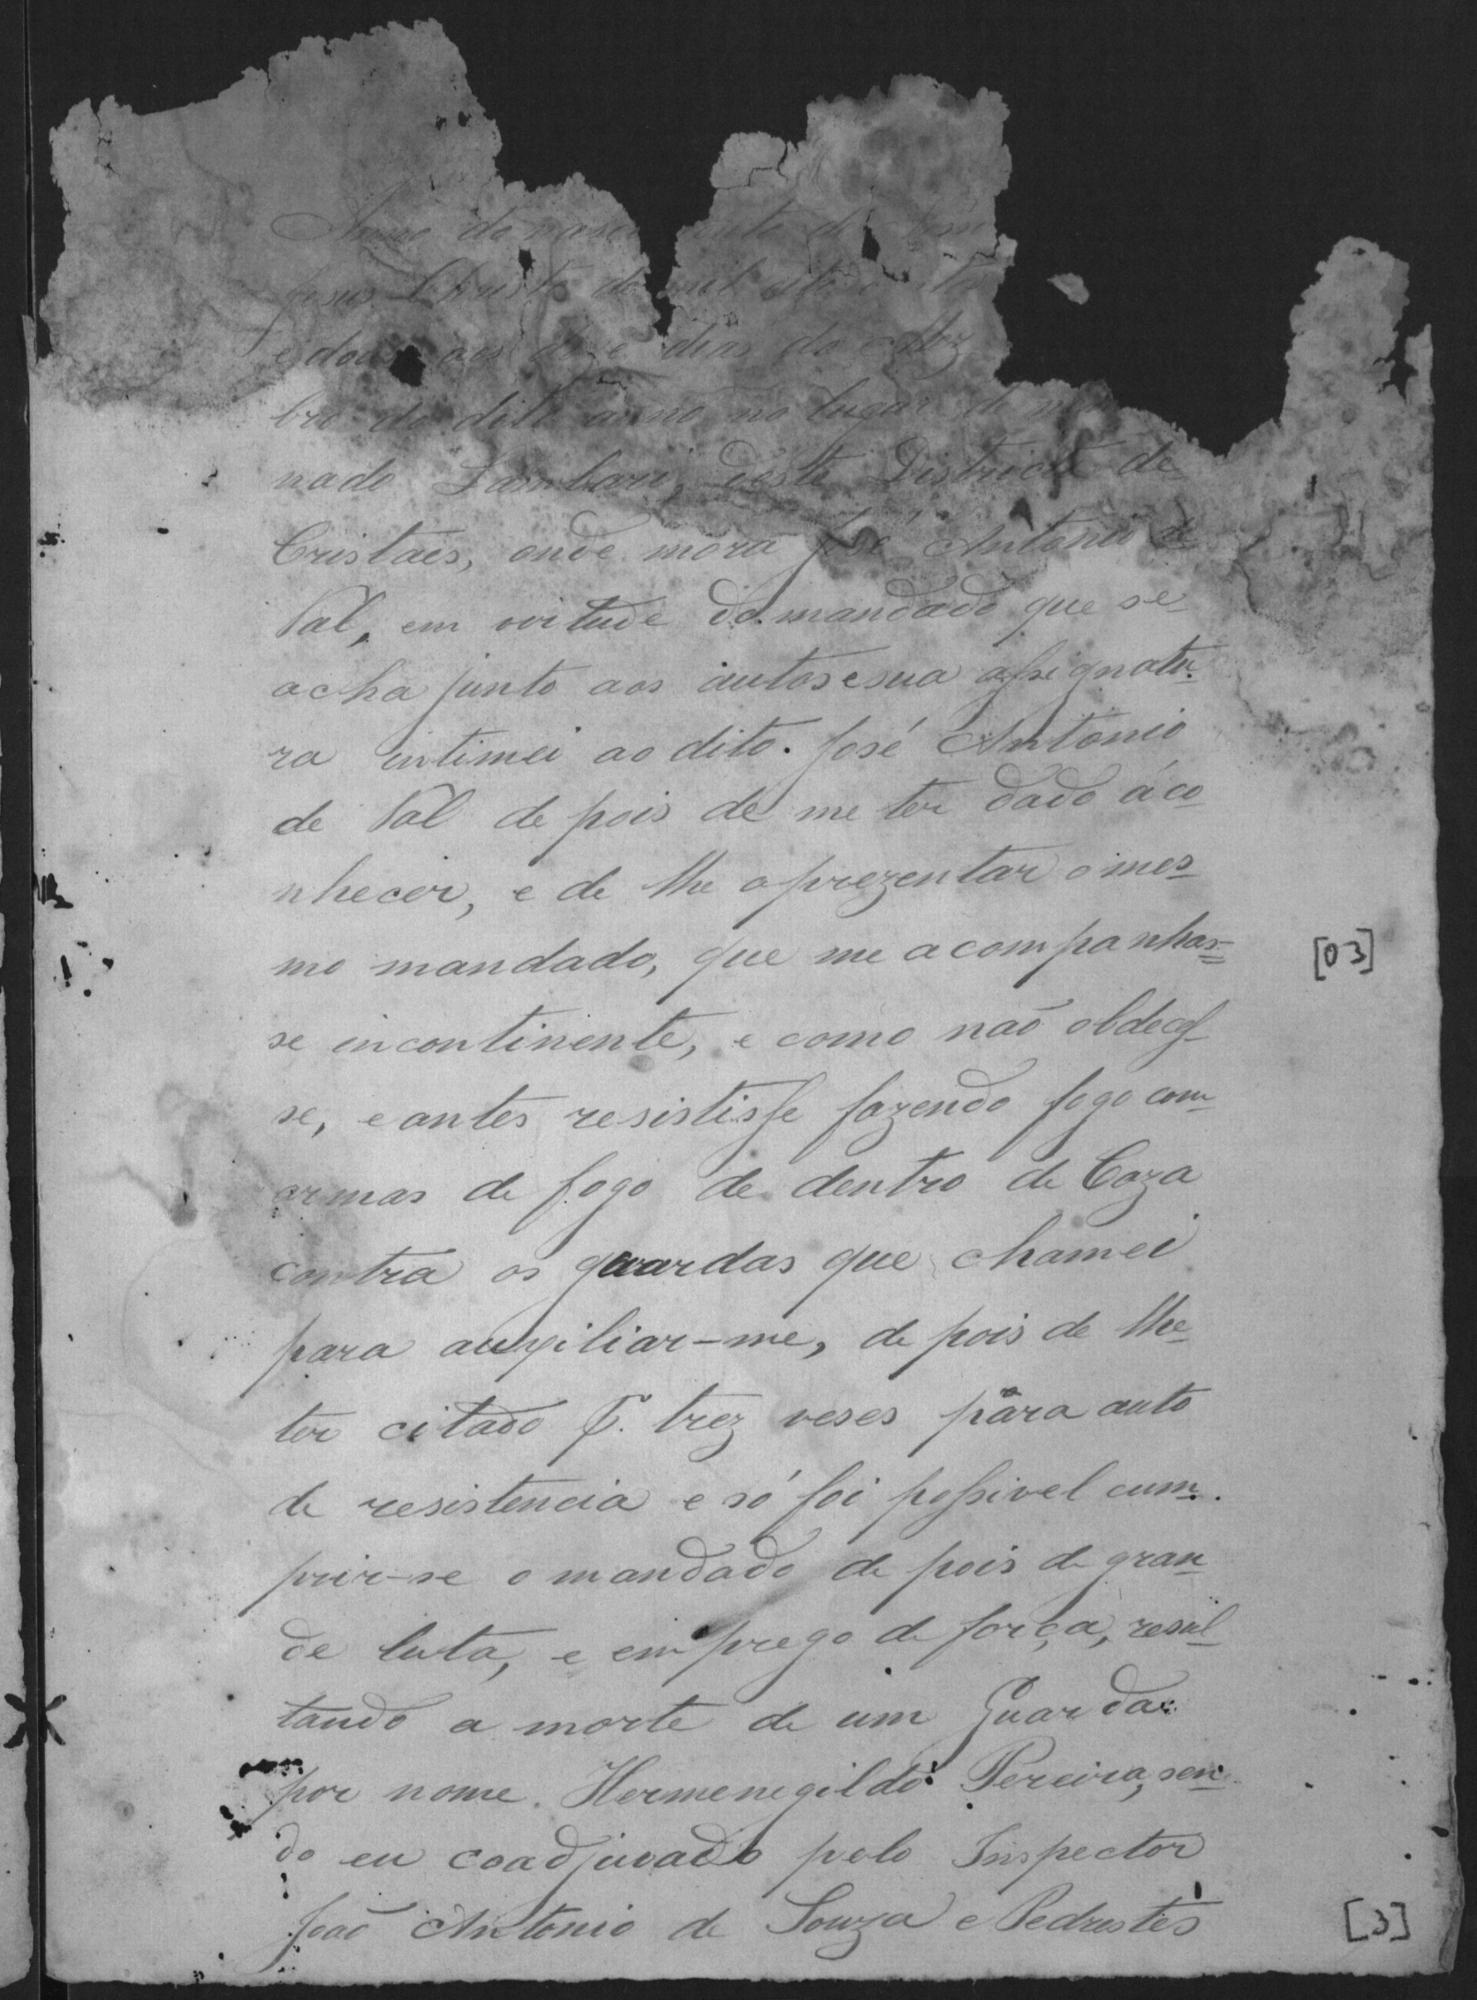 Anno do nasci
Jesus Christo de mil oito
e dous aos doze dias do
bro do dito anno no lugar de no
nado Lambari, deste Districto de
Cristaes, onde mora José Antonio de
Val, em virtude do mandado que se
acha junto aos autos e sua assignatu-
ra intimei ao dito. José Antonio
de Val de pois de me ter dado áco
nhecer, e de lhe aprezentar o mes-
mo mandado, que me acompanhas=
se incontinente, e como naõ obdeces-
se, e antes resistisse fazendo fogo com
armas de fogo de dentro de Caza
contra os guardas que chamei
para auxiliar-me, de pois de lhe
ter citado trez veses para auto
de resistencia e só foi possivel cum-
prir-se o mandado de pois de gran-
de luta, e emprego de força, resul-
tando a morte de um Guarda
por nome Hermenegildo Pereira, sen-
do eu coadjuvado pelo Inspector
Joaõ Antonio de Souza e Pedestes
[03]
[3]